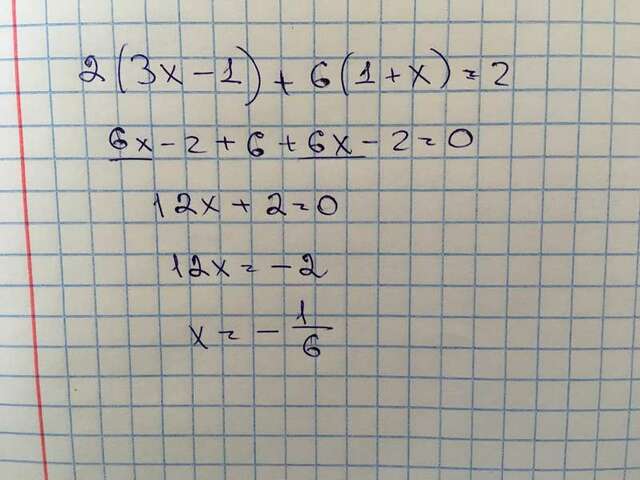 2(3x-1)+6(1+x)=2
6x-2+6+6x-2=0
12x+2=0
12x=-2
x=-1/6